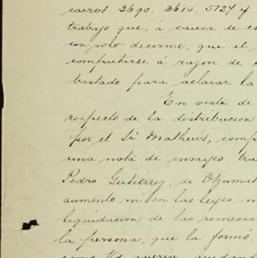 carros 2690, 3614, 5127 y
trabajo que, á causa de es
con solo decirme, que el
computarse á razon de
bastado para aclarar la
En vista de
respecto de la distribucion
por el Sr Mathews, comp
una nota de ensayes tra
Pedro Gutierrez, de Ozumat
aumento, ni en las leyes, ni
liquidacion de las remesas
la persona, que la formó,
como Vd queria